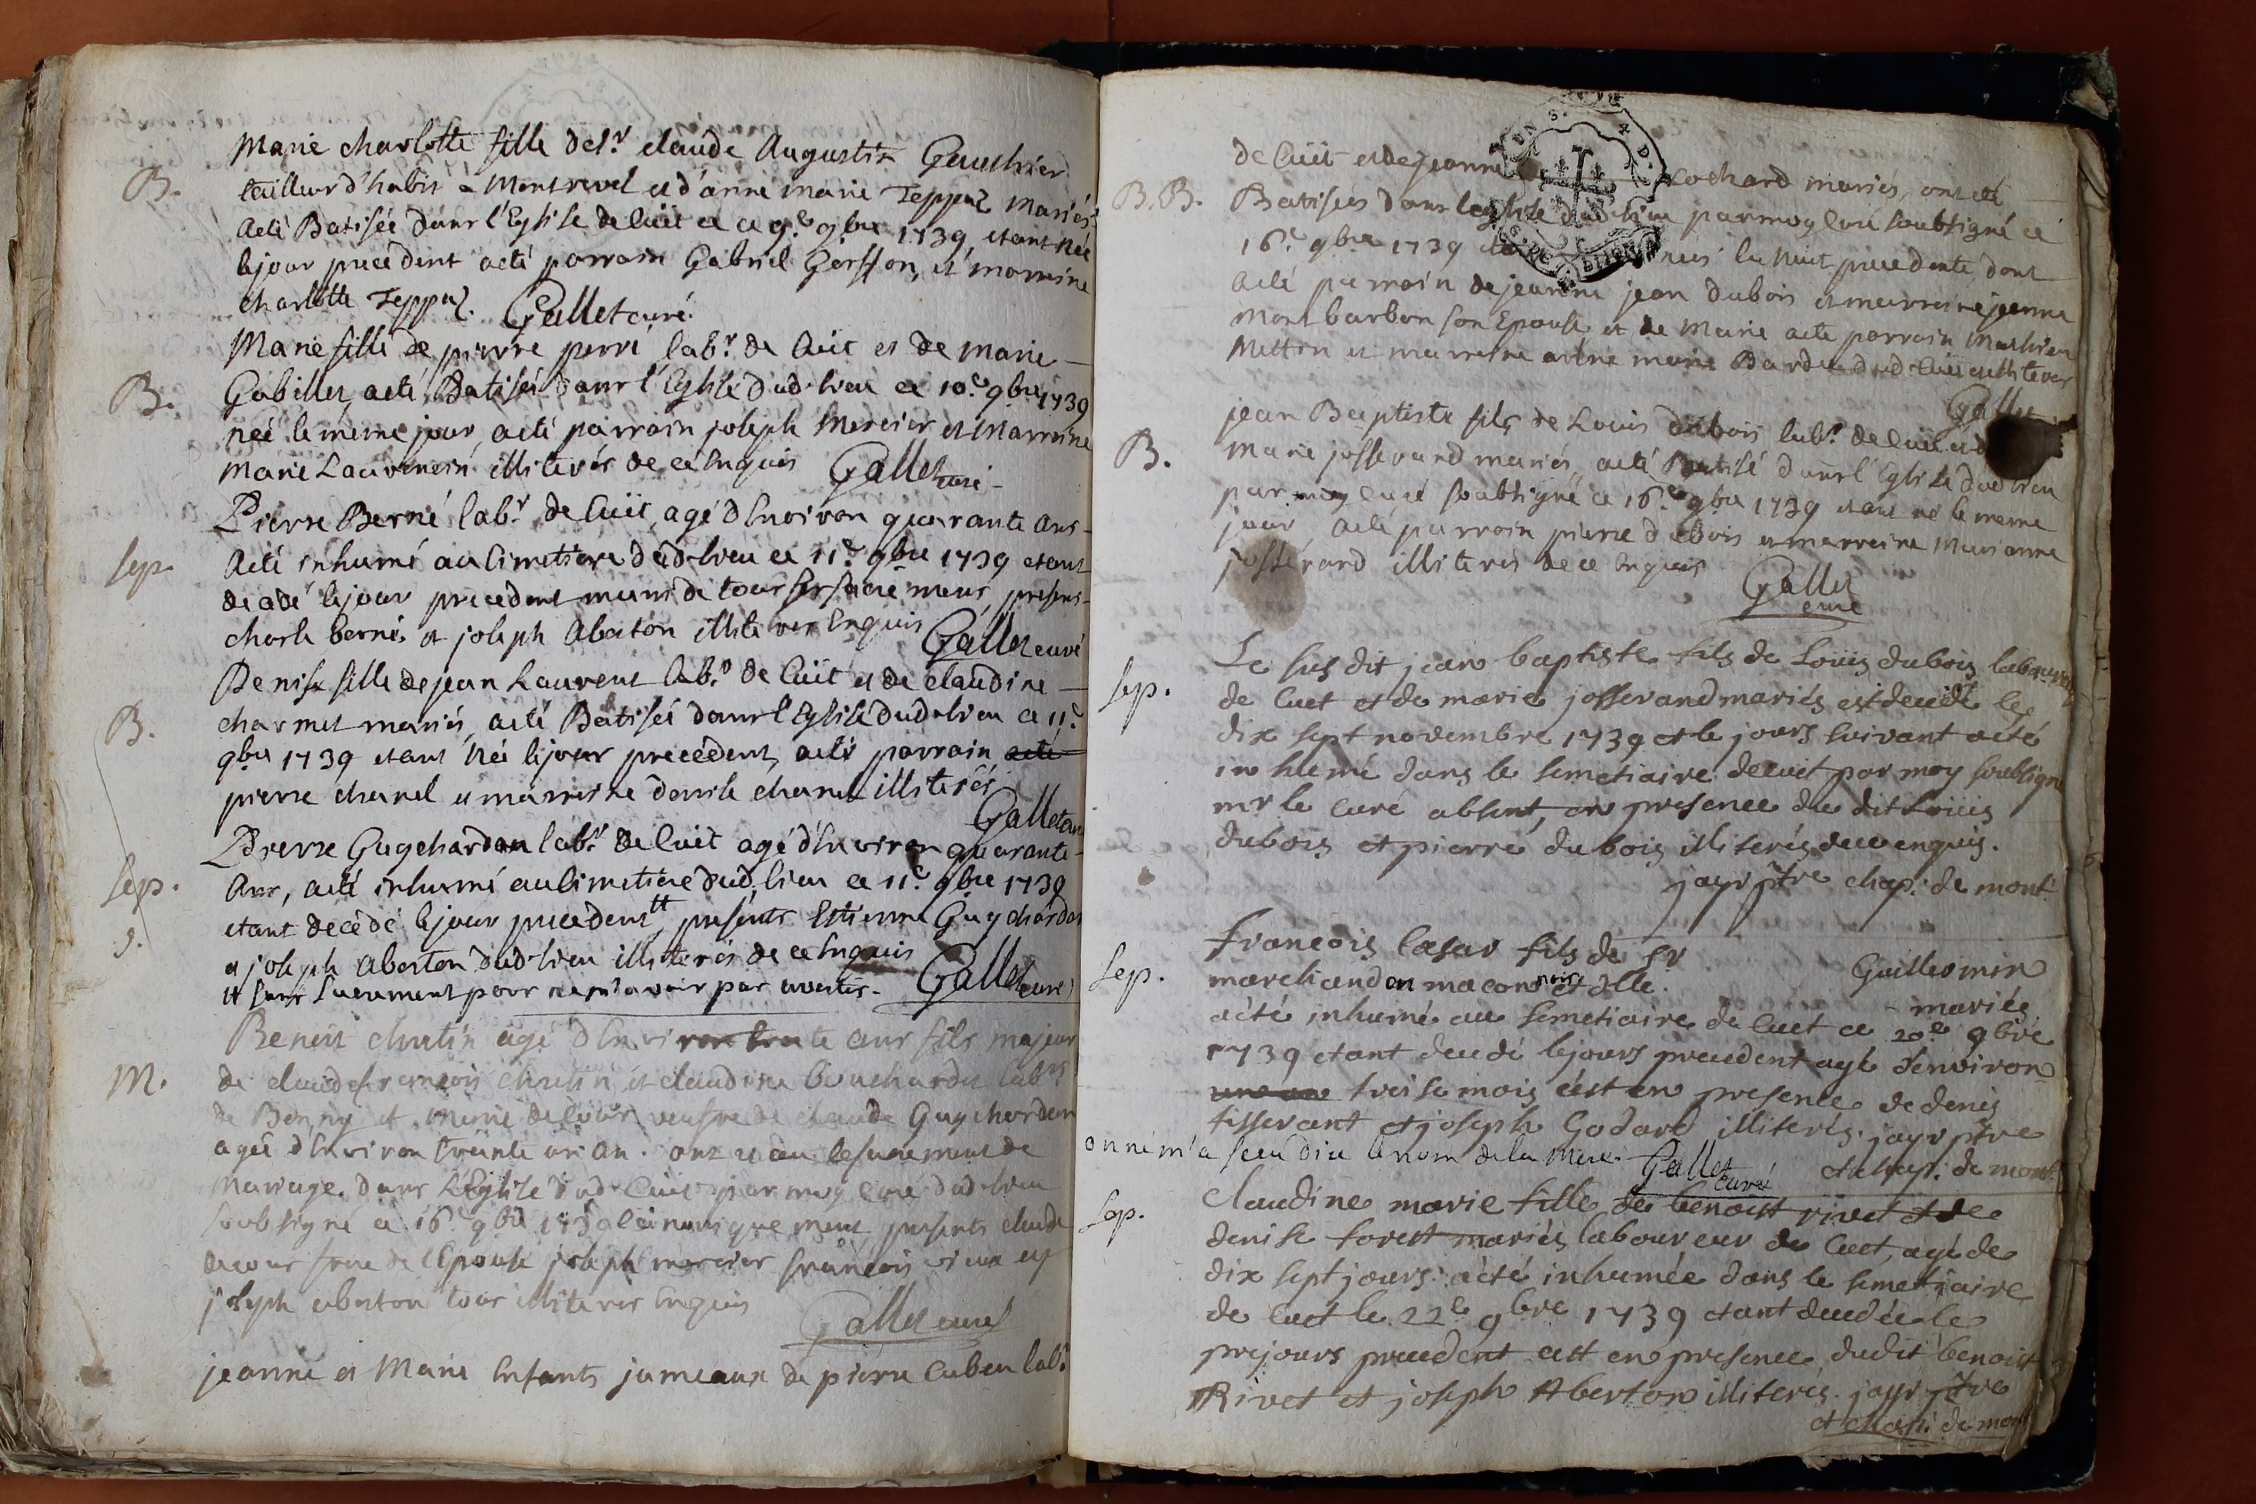 Marie charlotte fille de sr. claude Augustin Gauthier
B.
tailleur d'habit a Montrevel et d'anne marie Teppaz mariés
acté Batisée dans l'Eglise de Cuit ce 9e 9bre 1739, etant née
le jour precedent acté parrain Gabriel et marreine
charlotte Teppaz. Gallet curé.
Marie fille de pierre perré labr. de Cuit et de marie
B.
Gabillet, acté Batisée dans l'Eglise dud. lieu ce 10e 9bre 1739
née le meme jour, acté parrain joseph Mercier et marreine
marie Laurencin illiterés de ce Enquis Gallet curé
Pierre Berné labr. de Cuit, agé d'Environ quarante ans
sep.
acté inhumé au cimetiere dud. lieu ce 11e 9bre 1739 etant
decedé le jour precedent muni de tous ses sacremens, presens
charle berné et joseph Aberton illiterés Enquis Gallet curé
Denise fille de jean Laurent labr. de Cuit et de claudine
B.
charmet mariés, acté Batisée dans l'Eglise dud. lieu ce 11e
9bre 1739 etant née le jour precedent, acté parrain acté
pierre chanel et marreine denise chanel illiterés
Gallet curé
Pierre Guychardan labr. de Cuit agé d'Environ quarante
sep.
ans, acté inhumé au cimetiere dud. lieu ce 11e 9bre 1739
9.
etant decedé le jour precedent tt presents Estienne Guychardan
et joseph Aberton dud. lieu illiterés de ce Enquis
tt sans sacrement pour ne m'avoir pas averti. Gallet curé
Benoit chretin agé d'Environ trente ans fils majeur
M.
de claude françois chretin et claudine bouchardet labrs.
de Beny et Marie veufve de claude Guychardan
agée d'Environ trente un an. ont receu le sacrement de
mariage dans l'Eglise dud. Cuit par moy curé dud. lieu
soubsigné ce 16e 9bre 1739 presents claude
frere de l'Epouse joseph mercier françois et
joseph aberton tous illiterés Enquis
Gallet curé
jeanne et Marie Enfants jumeaux de pierre Cuben labr.
de Cuit et de jeanne cochard mariés, ont eté
B. B.
Batisées dans l'eglise dud. lieu par moy curé soubsigné ce
16e 9bre 1739 nées la nuit precedente dont
acté parrain de jeanne jean dubois et marreine jeanne
Montbarbon son Epouse et de Marie acté parrain Mathieu
Metton et marreine anne marie dud. Cuit illiterés
Gallet
jean Baptiste fils de Louis dubois labr. de Cuit et d
B.
marie josserand mariés, acté Batisé dans l'Eglise dud. lieu
par moy curé soubsigné ce 16e 9bre 1739 etant né le meme
jour, acté parrain pierre dubois et marreine marianne
josserand illiterés de ce Enquis
Gallet
curé
Le sus dit jean baptiste fils de Louis dubois laboureur
sep.
de Cuet et de marie josserand mariés est decedé le
dix sept novembre 1739 et le jours suivant acté
inhumé dans le semetiaire de cuet par moy soubligné
mr le curé absent, en presence du dit Louis
dubois et pierre dubois illiterés de ce enquis.
jayr ptre chap: de mont.
françois Cesar fils de Sr Guillermin
sep.
marchand en macon et dlle. mariés
acté inhumé au semetiaire de Cuet ce 20e 9bre
1739 etant decedé le jours precedent agé d'environ
une an treise mois c'est en presence de denis
tisserant et joseph Godard illiterés. jayr ptre
on ne m'a sceu dire le nom de la Mere. Gallet curé et chap: de mont.
sep.
Claudine marie fille de benoist rivet et de
denise forest mariés laboureur de Cuet, agé de
dix sept jours. acté inhumée dans le semetiaire
de Cuet le 22e 9bre 1739 etant decedée le
prejours precedent cest en presence dudit benoist
Rivet et joseph Aberton illiterés. jayr ptre
et chap: de mont